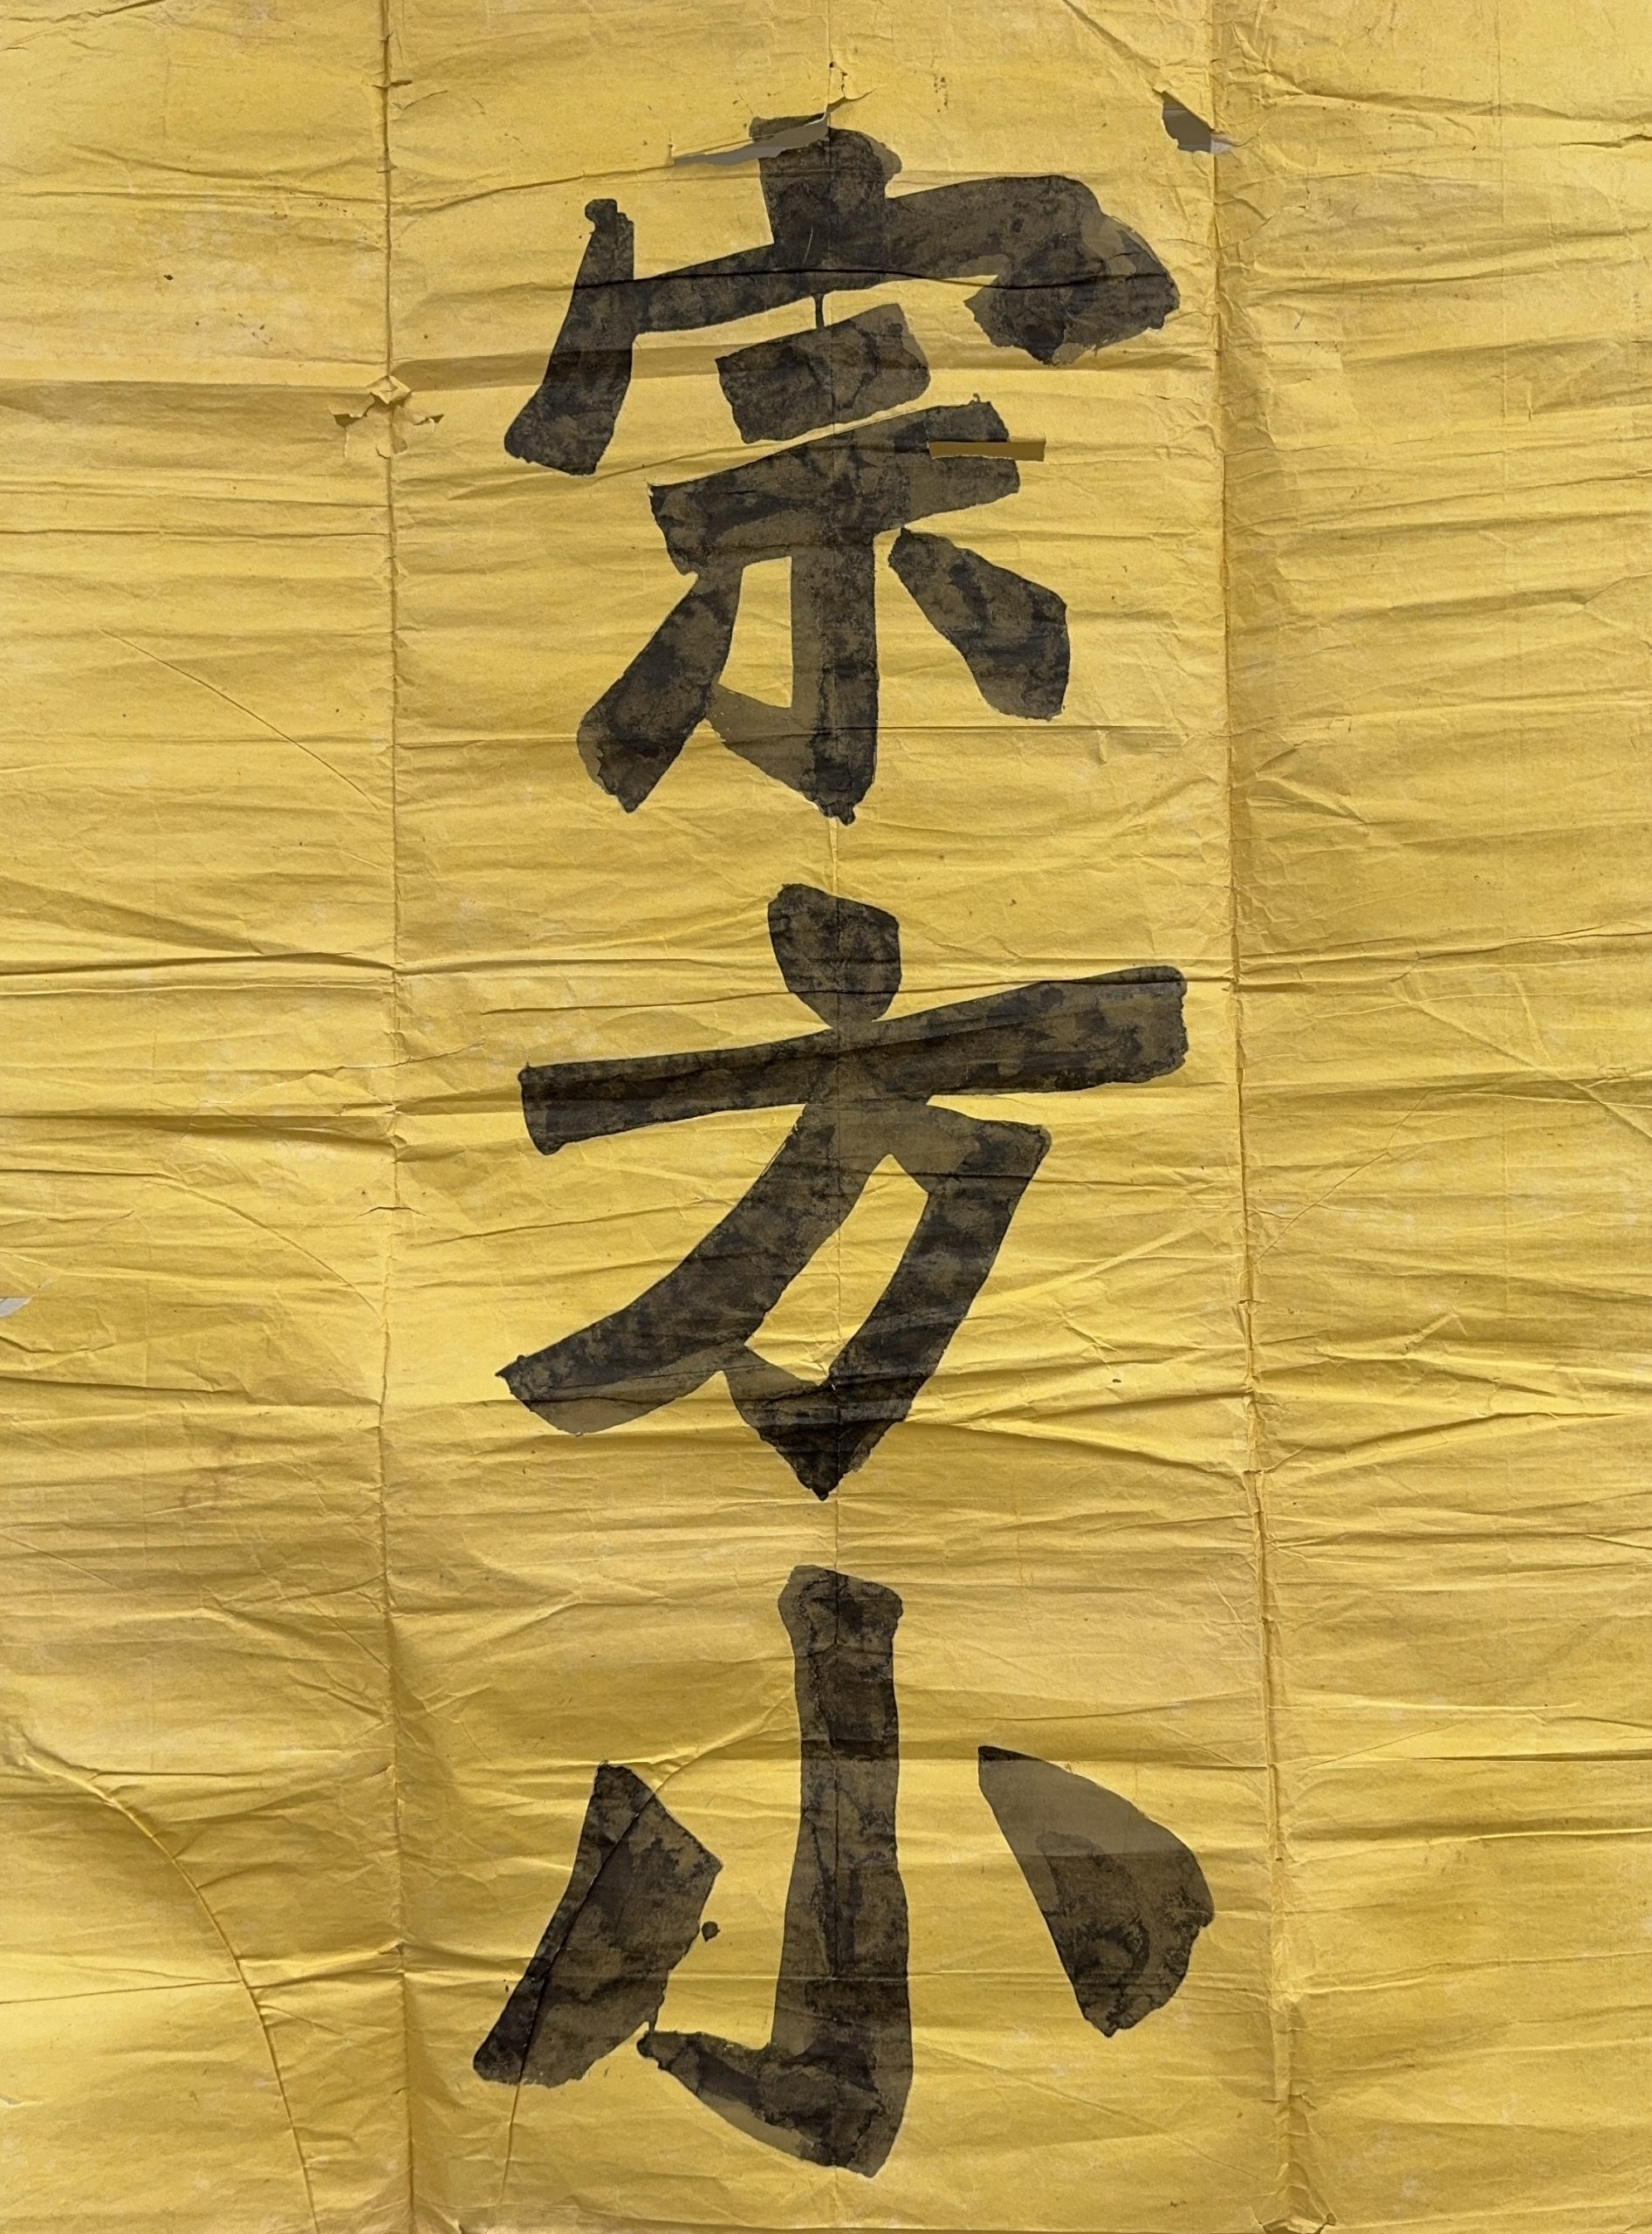 宗方小